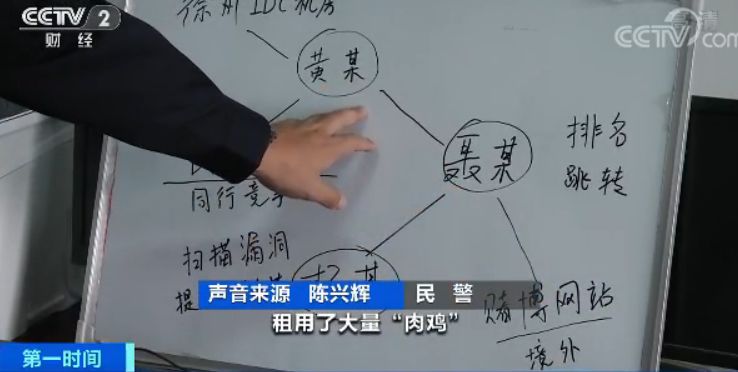 CCTV 2
财经
CCTV com
徐州IDC机房
黄某
聂某
排名
跳转
同行竞争
扫描漏洞
提
某
赌博网站
境外
声音来源 陈兴辉 民警
租用了大量“肉鸡”
第一时间